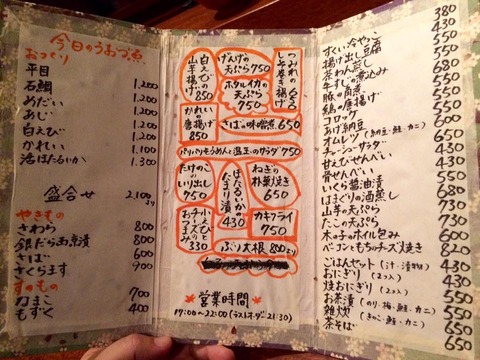 今日のうおづ魚
おつくり
平目 1,200
石鯛 1,200
めだい 1,200
あじ 1,200
白えび 1,200
かれい 1,100
活ほたるいか 1,300
盛合せ 2,100より
やきもの
さわら 800
銀だら西京漬 800
さば 600
さくらます 750
すのもの
なまこ 700
もずく 400
つみれの しそ巻き揚げ
げんげの 天ぷら 750
白えびの 山芋揚げ 850
ホタルイカの 天ぷら 750
かれい 唐揚げ 850
さばの味噌煮 650
パリパリそうめんと温玉のサラダ 750
ねぎの 朴葉焼き 650
ほたるいかの たまり漬 430
たけのこの いり出し 750
カキフライ 750
チーズの 330
ぶり大根 800より
営業時間
17:00〜22:00(ラストオーダー21:30)
380
すくいやっこ 430
揚げ出し豆腐 550
茶わん蒸し 550
牛すじの煮込み 650
豚の角煮 650
鶏の唐揚げ 650
コロッケ 550
あげ納豆 430
オムレツ(納豆・鮭・カニ) 550
チューシューサラダ 550
甘えびせんべい 430
骨せんべい 430
いくら醤油漬 550
はまぐりの酒蒸し 680
山芋の天ぷら 550
たこの天ぷら 550
木の子のホイル包み 550
ベーコンともちのチーズ焼き 820
ごはんセット(汁・漬物) 430
おにぎり(2ヶ入) 430
焼おにぎり(2ヶ入) 430
お茶漬(のり・梅・鮭・カニ) 550
雑炊(きのこ・鮭・カニ) 550
茶そば 650